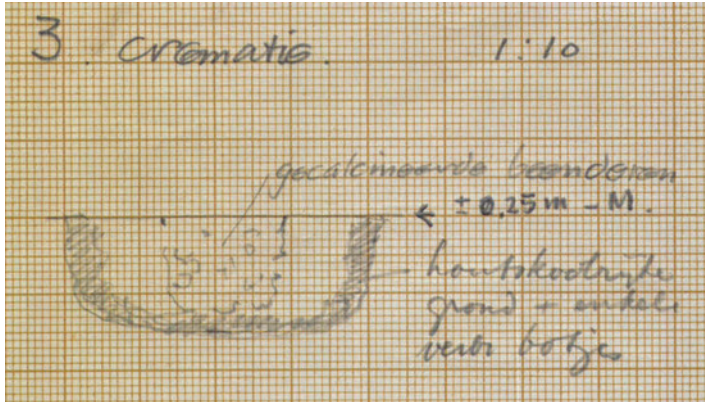 3. Crematie. 1:10
gecalcineerde beenderen
← ± 0,25 m - M.
houtskoolrijke
grond + enkele
verbr botjes